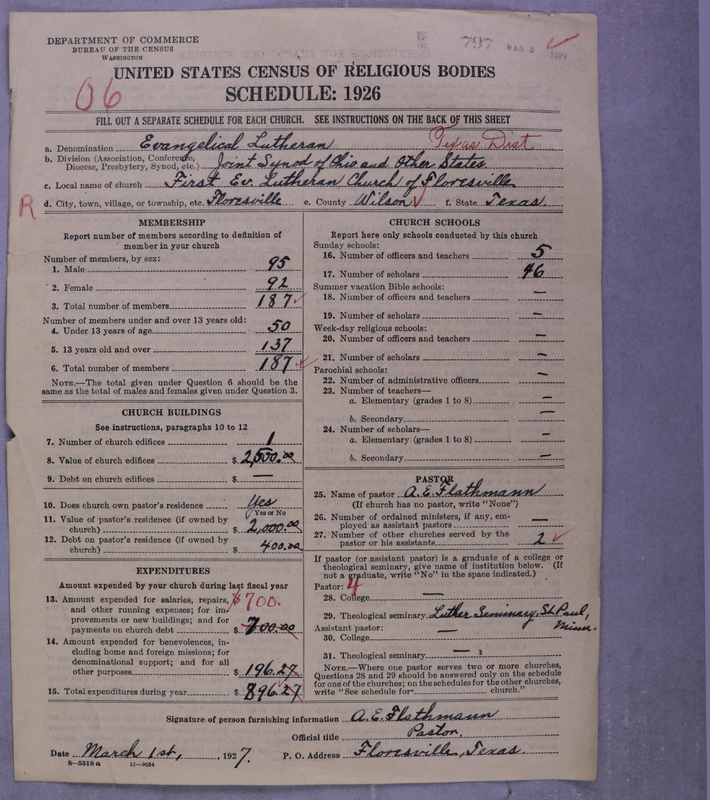 DEPARTMENT OF COMMERCE
BUREAU OF THE CENSUS
WASHINGTON
797
MAR 5 1927
UNITED STATES CENSUS OF RELIGIOUS BODIES
SCHEDULE: 1926
06
FILL OUT A SEPARATE SCHEDULE FOR EACH CHURCH. SEE INSTRUCTIONS ON THE BACK OF THIS SHEET
a. Denomination Evangelical Lutheran Texas Dist
b. Division (Association, Conference, Diocese, Presbytery, Synod, etc.) Joint Synod of Ohio and Other States
c. Local name of church First Ev. Lutheran Church of Floresville
R
d. City, town, village, or township, etc. Floresville e. County Wilson f. State Texas.
MEMBERSHIP
Report number of members according to definition of
member in your church
Number of members, by sex:
1. Male 95
2. Female 92
3. Total number of members 187
Number of members under and over 13 years old:
4. Under 13 years of age 50
5. 13 years old and over 137
6. Total number of members 187
NOTE.—The total given under Question 6 should be
the same as the total of males and females given under Question 3.
CHURCH BUILDINGS
See instructions, paragraphs 10 to 12
7. Number of church edifices 1
8. Value of church edifices $ 2,500.00
9. Debt on church edifices $ —
10. Does church own pastor's residence? Yes
Yes or No
11. Value of pastor's residence (if owned by
church) $ 2,000.00
12. Debt on pastor's residence (if owned by
church) $ 400.00
EXPENDITURES
Amount expended by your church during last fiscal year
13. Amount expended for salaries, repairs, $700.
and other running expenses; for im-
provements or new buildings; and for
payments on church debt $ 700.00
14. Amount expended for benevolences, in-
cluding home and foreign missions; for
denominational support; and for all
other purposes $ 196.27
15. Total expenditures during year $ 896.27
CHURCH SCHOOLS
Report here only schools conducted by this church
Sunday schools:
16. Number of officers and teachers 5
17. Number of scholars 46
Summer vacation Bible schools:
18. Number of officers and teachers —
19. Number of scholars —
Week-day religious schools:
20. Number of officers and teachers —
21. Number of scholars —
Parochial schools:
22. Number of administrative officers —
23. Number of teachers—
a. Elementary (grades 1 to 8) —
b. Secondary —
24. Number of scholars—
a. Elementary (grades 1 to 8) —
b. Secondary —
PASTOR
25. Name of pastor A. E. Flathmann
(If church has no pastor, write "None")
26. Number of ordained ministers, if any, em-
ployed as assistant pastors —
27. Number of other churches served by the
pastor or his assistants 2
If pastor (or assistant pastor) is a graduate of a college or
theological seminary, give name of institution below. (If
not a graduate, write "No" in the space indicated.)
Pastor: 4
28. College —
29. Theological seminary Luther Seminary, St. Paul, Minn.
Assistant pastor:
30. College —
31. Theological seminary —
NOTE.—Where one pastor serves two or more churches,
Questions 28 and 29 should be answered only on the schedule
for one of the churches; on the schedules for the other churches,
write "See schedule for church."
Signature of person furnishing information A. E. Flathmann
Official title Pastor.
Date March 1st, , 1927. P. O. Address Floresville, Texas.
8—5518 a 11—9054